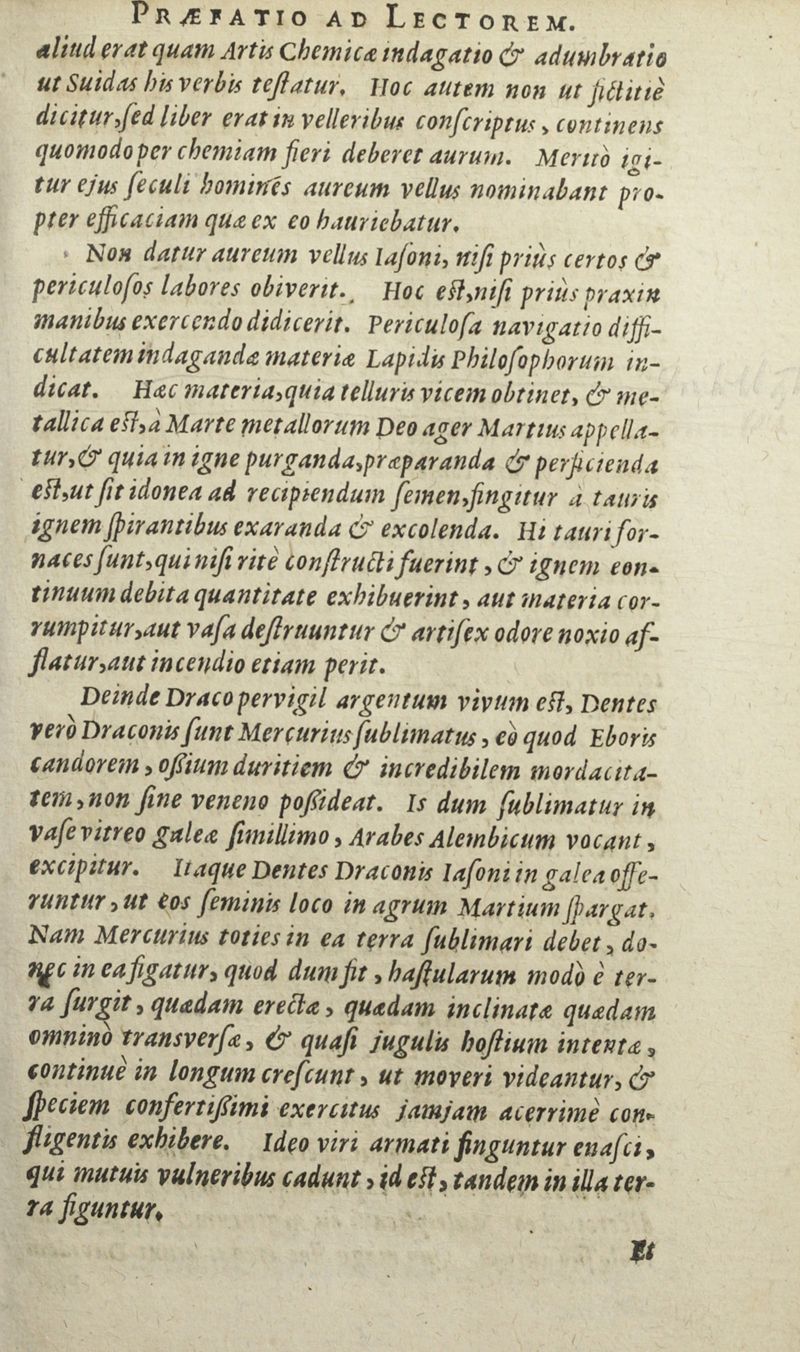 PRÆFATIO AD LECTOREM.
aliud erat quam Artis Chemicæ indagatio & adumbratio
ut Suidas his verbis teſtatur. Hoc autem non ut fictitiè
dicitur,ſed liber erat in velleribus conſcriptus, continens
quomodo per chemiam fieri deberet aurum. Meritò igi-
tur ejus ſeculi homines aureum vellus nominabant pro-
pter efficaciam quæ ex eo hauriebatur.
Non datur aureum vellus Iaſoni, niſi priùs certos &
periculoſos labores obiverit. Hoc eſt,niſi priùs praxin
manibus exercendo didicerit. Periculoſa navigatio diffi-
cultatem indagandæ materiæ Lapidis Philoſophorum in-
dicat. Hæc materia,quia telluris vicem obtinet, & me-
tallica eſt,à Marte metallorum Deo ager Martius appella-
tur,& quia in igne purganda,præparanda & perficienda
eſt,ut fit idonea ad recipiendum ſemen,fingitur à tauris
ignem ſpirantibus exaranda & excolenda. Hi tauri for-
naces ſunt,qui niſi ritè conſtructi fuerint, & ignem con-
tinuum debita quantitate exhibuerint, aut materia cor-
rumpitur,aut vaſa deſtruuntur & artifex odore noxio af-
flatur,aut incendio etiam perit.
Deinde Draco pervigil argentum vivum eſt, Dentes
verò Draconis ſunt Mercurius ſublimatus, eò quod Eboris
candorem, oſſium duritiem & incredibilem mordacita-
tem,non ſine veneno poſſideat. Is dum ſublimatur in
vaſe vitreo galeæ ſimillimo, Arabes Alembicum vocant,
excipitur. Itaque Dentes Draconis Iaſoni in galea offe-
runtur, ut eos ſeminis loco in agrum Martium ſpargat.
Nam Mercurius toties in ea terra ſublimari debet, do-
nec in ea figatur, quod dum fit, haſtularum modò è ter-
ra ſurgit, quædam erectæ, quædam inclinatæ quædam
omninò transverſæ, & quaſi jugulis hoſtium intentæ,
continuè in longum creſcunt, ut moveri videantur, &
ſpeciem confertiſſimi exercitus jamjam acerrimè con-
fligentis exhibere. Ideo viri armati finguntur enaſci,
qui mutuis vulneribus cadunt, id eſt, tandem in illa ter-
ra figuntur.
Et